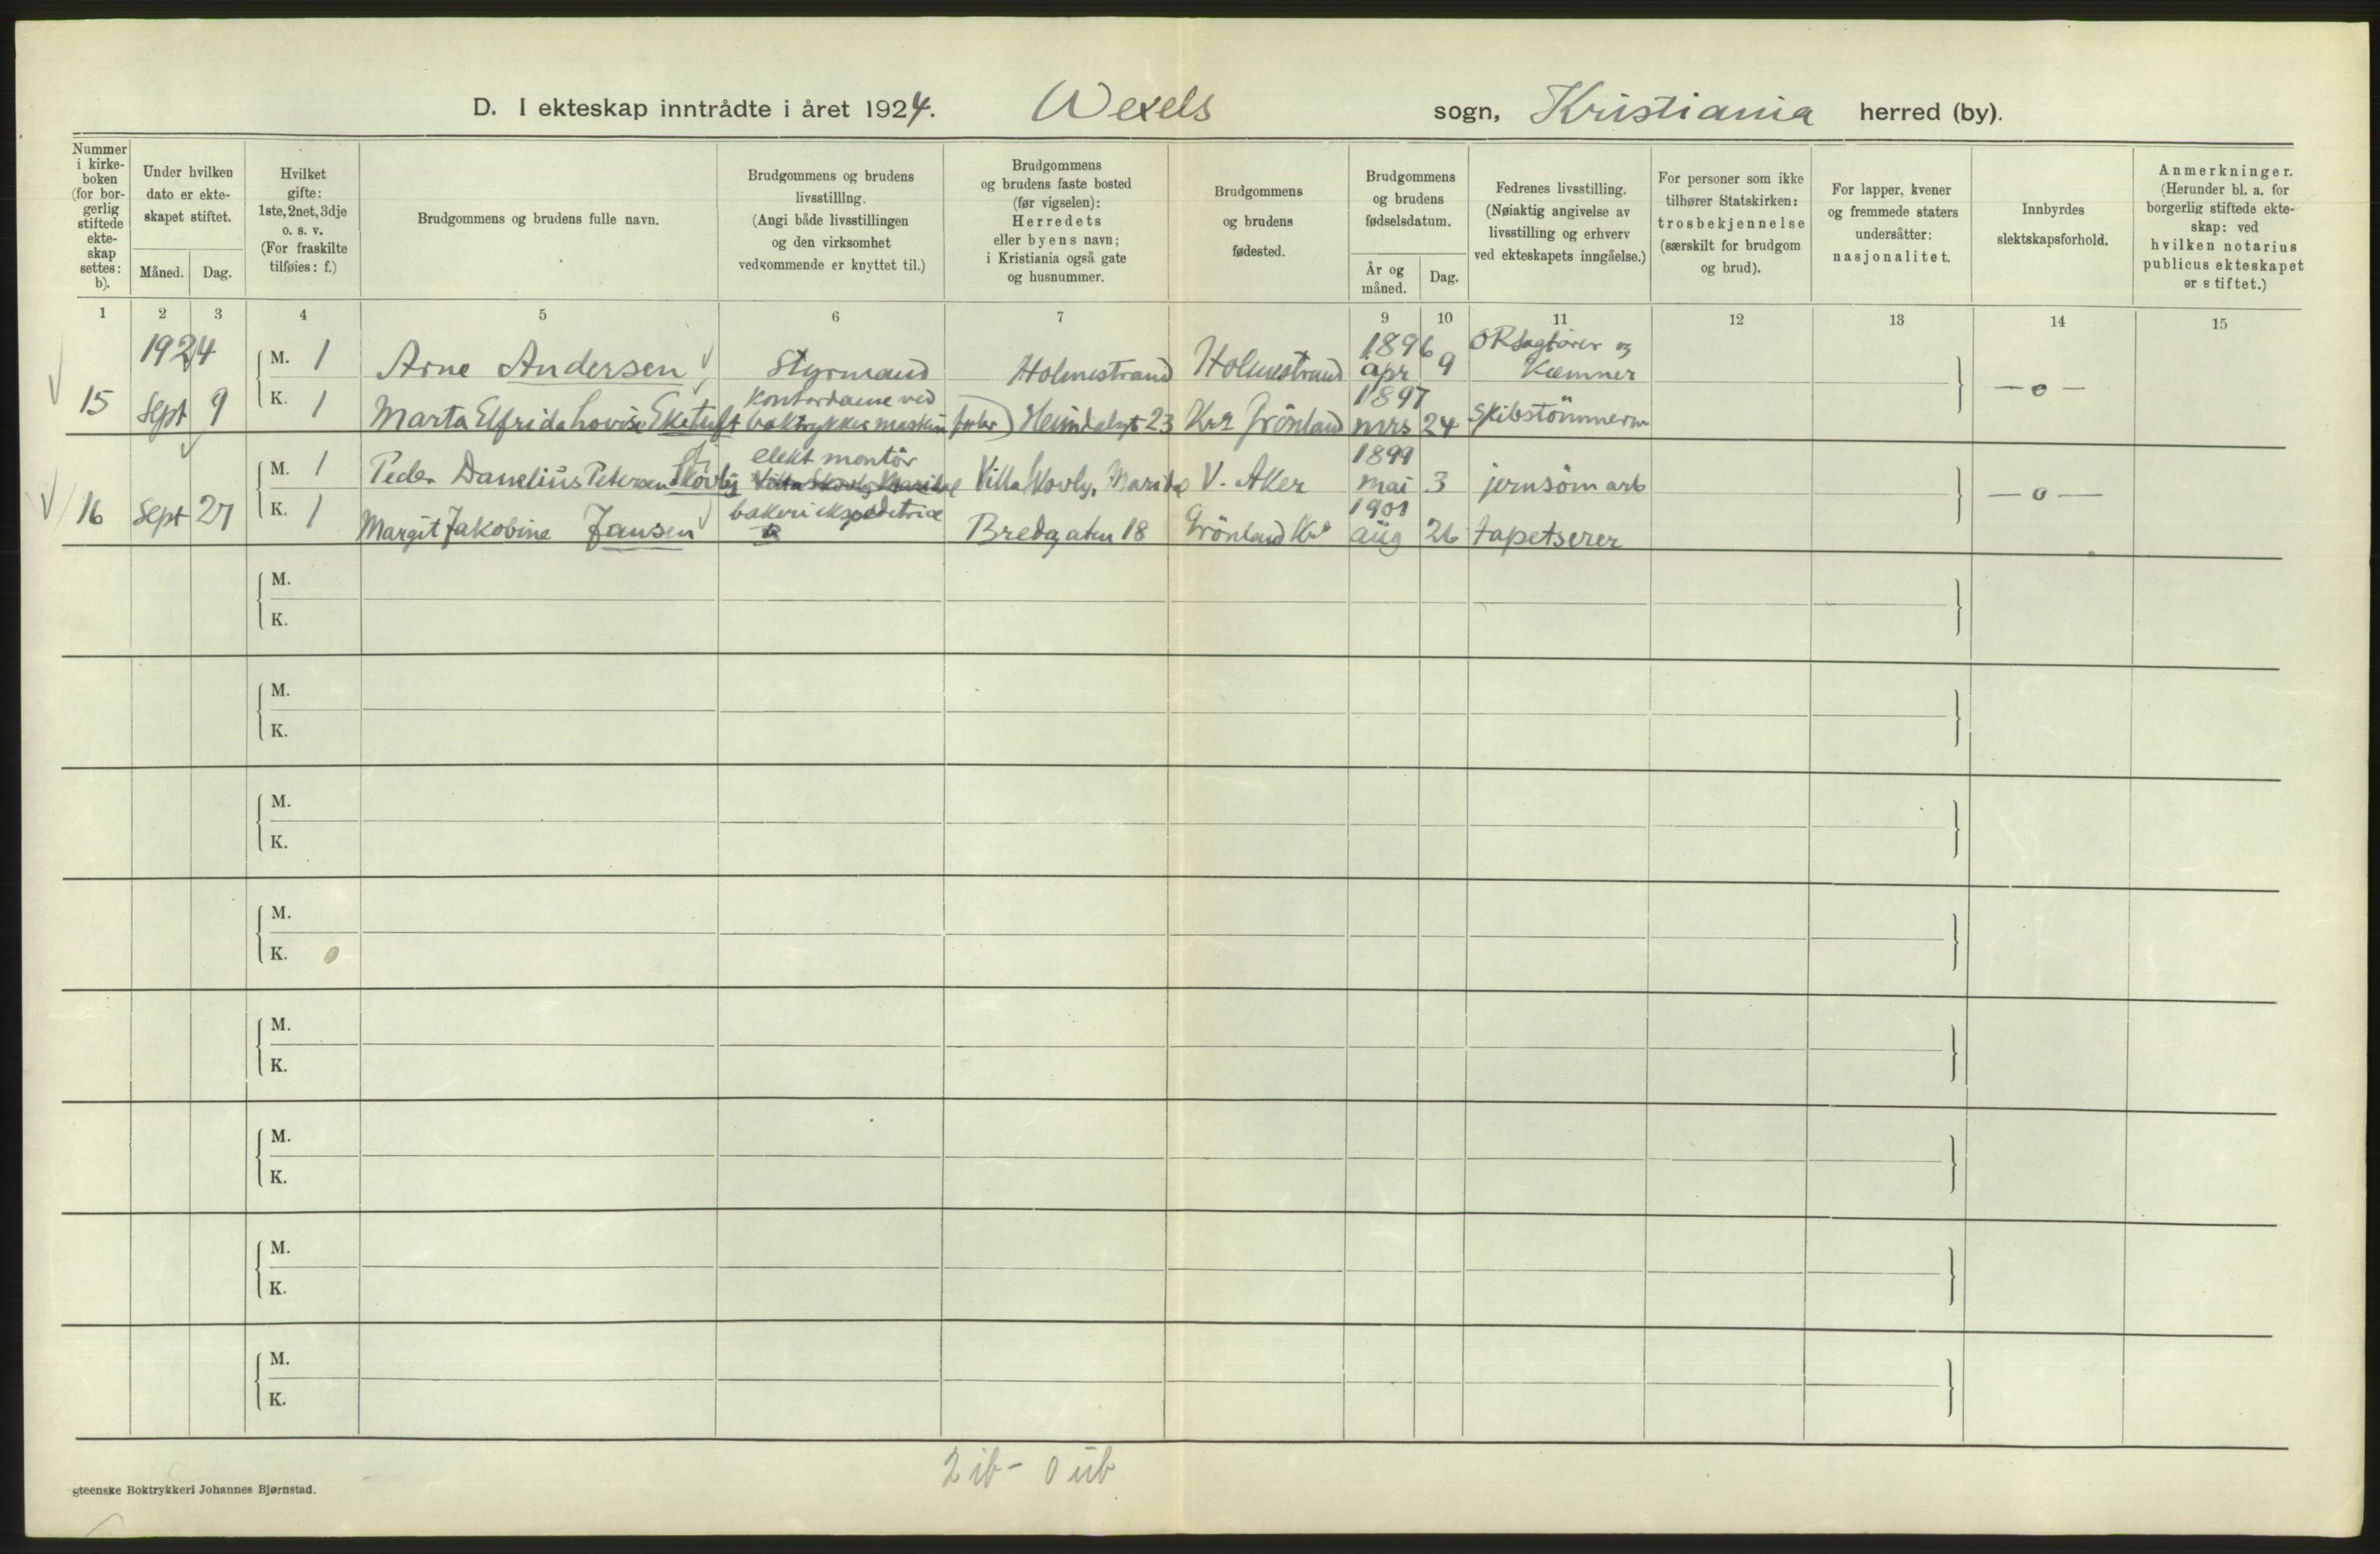 D. I ekteskap inntrådte i året 1924. Wexels sogn, Kristiania herred (by).
Nummer i kirke- boken (for bor- gerlig stiftede ekte- skap settes: b).
Under hvilken dato er ekte- skapet stiftet.
Måned. Dag.
Hvilket gifte: 1ste, 2net, 3dje o. s. v. (For fraskilte tilføies: f.)
Brudgommens og brudens fulle navn.
Brudgommens og brudens livsstilling. (Angi både livsstillingen og den virksomhet vedkommende er knyttet til.)
Brudgommens og brudens faste bosted (før vigselen): Herredets eller byens navn; i Kristiania også gate og husnummer.
Brudgommens og brudens fødested.
Brudgommens og brudens fødselsdatum.
År og måned. Dag.
Fedrenes livsstilling. (Nøiaktig angivelse av livsstilling og erhverv ved ekteskapets inngåelse.)
For personer som ikke tilhører Statskirken: trosbekjennelse (særskilt for brudgom og brud).
For lapper, kvener og fremmede staters undersåtter: nasjonalitet.
Innbyrdes slektskapsforhold.
Anmerkninger. (Herunder bl. a. for borgerlig stiftede ekte- skap: ved hvilken notarius publicus ekteskapet er stiftet.)
1 2 3 4 5 6 7 9 10 11 12 13 14 15
1924
M. 1 Arne Andersen Styrmand Holmestrand Holmestrand 1896 apr 9 ORsagfører og Kæmner
15 Sept 9 K. 1 Marta Elfrida Lovise Eketuft Kontordame ved boktrykker maskin Heimdalsgt 23 Kra Grönland 1897 mrs 24 Skibstömmerm — o —
M. 1 Peder Danelius Petersen Skovly elekt montör Villa Skovly, Maridal V. Aker 1899 mai 3 jernsöm arb
16 Sept 27 K. 1 Margit Jakobine Jansen bakeriekspeditrice Bredgaten 18 Grönland Kra 1901 aug 26 tapetserer — o —
M.
K.
M.
K.
M.
K.
M.
K.
M.
K.
M.
K.
M.
K.
M.
K.
2 ib - 0 ub
Steenske Boktrykkeri Johannes Bjørnstad.